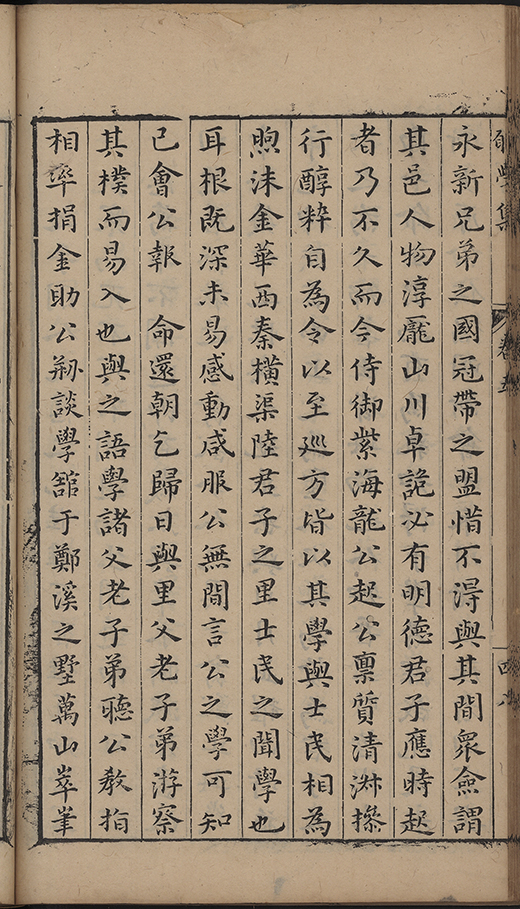 願學集 卷五 四八
永新兄弟之國冠帶之盟惜不淂與其間衆僉謂
其邑人物淳龎山川卓詭必有明德君子應時起
者乃不久而今侍御紫海龍公起公禀質清淋操
行醇粹自為令以至廵方皆以其學與士民相為
煦沫金華西秦横渠陸君子之里士民之聞學也
耳根既深未易感動咸服公無間言公之學可知
已會公報 命還朝乞歸日與里父老子弟游察
其樸而易入也與之語學諸父老子弟聴公教指
相率捐金助公剏談學舘于鄭溪之墅萬山崒峯